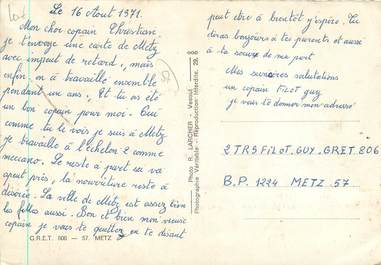 Le 16 Aout 1971.
Mon cher copain Christian;
je t'envoye une carte de Metz
avec un peut de retard, mais
enfin. on a travaillé ensemble
pendant un ans. Et tu as été
un bon copain pour moi. Oui
comme tu le vois je suis à Metz
je travaille à l'echelon 2 comme
mecano. Le reste à part sa va
apeut près, la nourriture reste à
désirée. La ville de Metz est assez bien
les filles aussi. Bon et bien mon vieux
copain je vais te quitter en te disant
G.R.E.T. 806 - 57. METZ
Photo R. LARCHER - Vesoul
peut être à bientôt j'espère. Tu
diras bonjours à tes parents et aussi
à ta soeur de ma part
Mes sincères salutations
un copain FILOT guy
je vais te donner mon adresse
2 TRS FILOT. GUY. GRET 806
B.P. 1224 METZ. 57